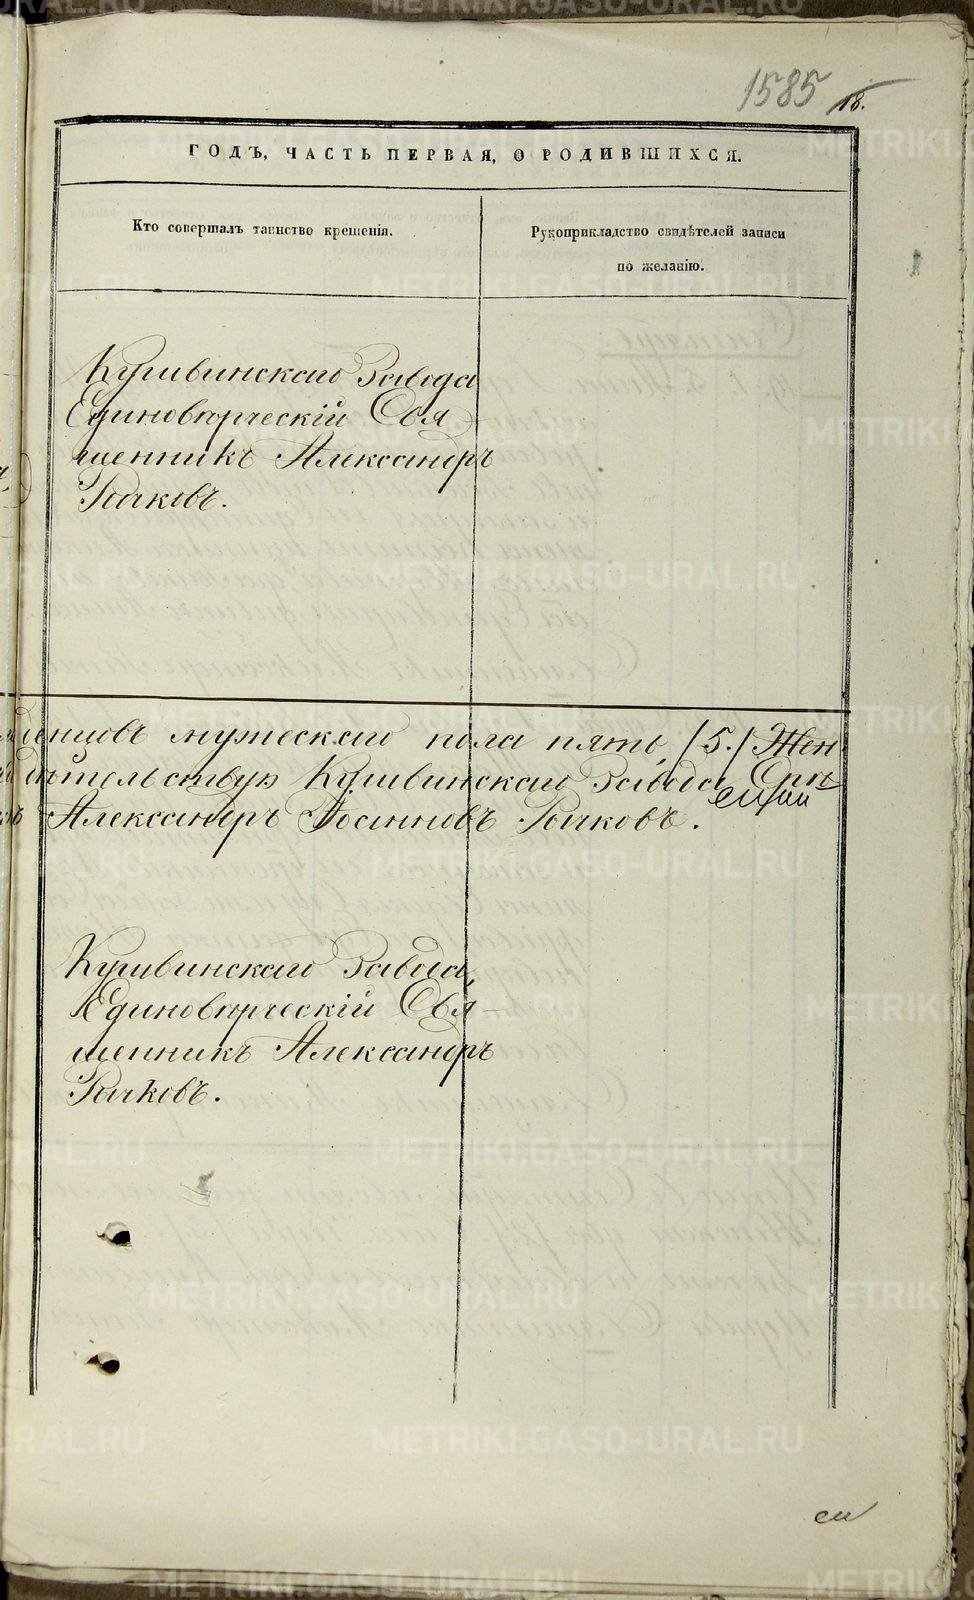 1585 18.
ГОДЪ, ЧАСТЬ ПЕРВАЯ, О РОДИВШИХСЯ.
Кто совершалъ таинство крещенія.
Рукоприкладство свидѣтелей записи
по желанію.
Кушвинскаго Завода
Единовѣрческій Свя
щенникъ Александръ
Рычковъ.
денцовъ мужескаго пола пять /5./ Жен
дѣтельствую Кушвинскаго Завода
Александръ Іоанновъ Рычковъ.
Кушвинскаго Завода,
Единовѣрческій Свя-
щенникъ Александръ
Рычковъ.
METRIKI.GASO-URAL.RU